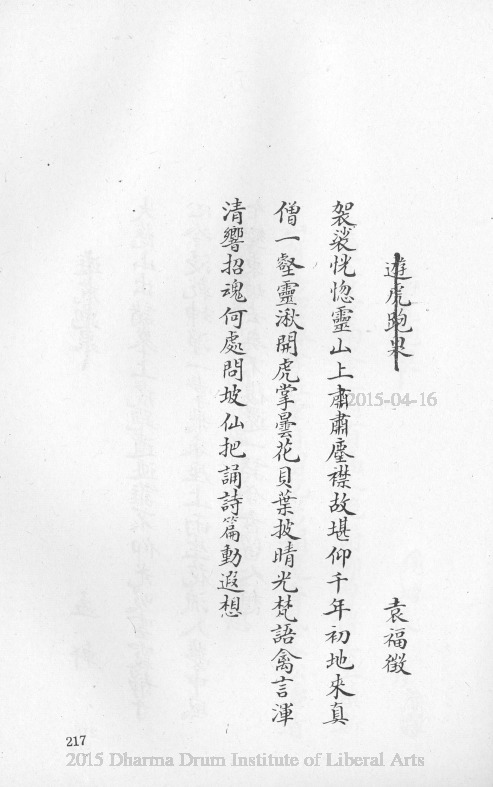 遊虎跑泉
袁福徵
袈裟恍惚靈山上肅肅塵襟故堪仰千年初地來真
僧一壑靈湫開虎掌曇花貝葉披晴光梵語禽言渾
清響招魂何處問坡仙把誦詩篇動遐想
2015-04-16
217
2015 Dharma Drum Institute of Liberal Arts